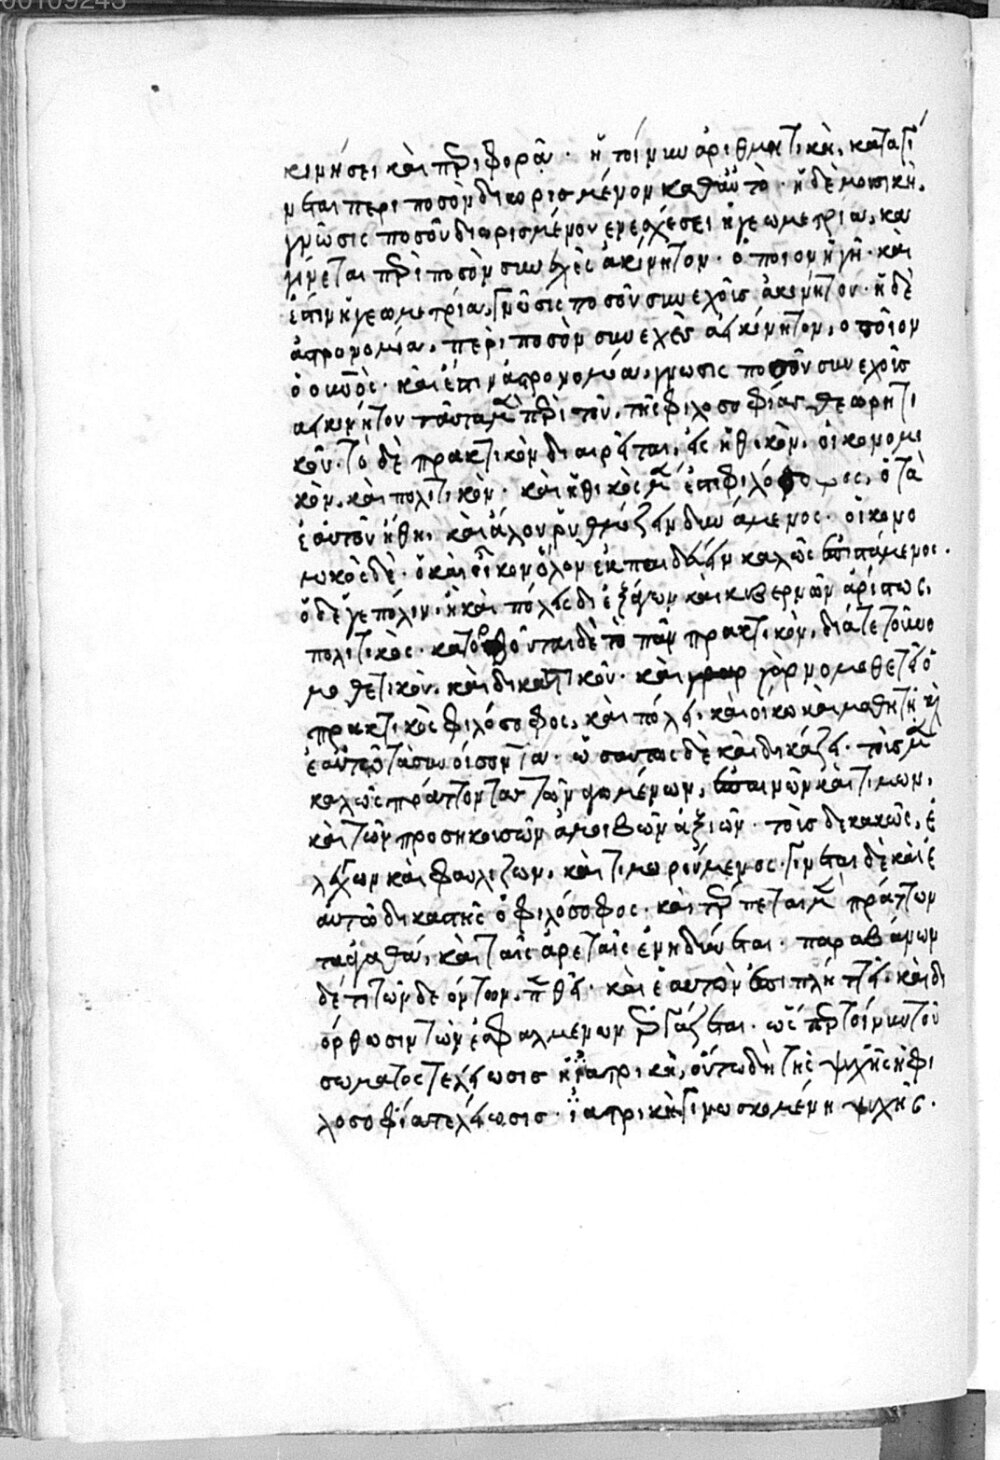 00109243
κινήσει καὶ περιφορᾷ · ἡ τοίνυν ἀριθμητικὴ, καταγί
νεται περι ποσὸν διωρισμένον καθαὑτὸ · ἡ δὲ μουσικὴ.
γνῶσις ποσοῦ διωρισμένου ἐν σχέσει ἡ γεωμετρία, κα
γίνεται περὶ ποσὸν συνεχὲς ἀκίνητον · ὁποῖον ἡ γῆ · καὶ
ἐστιν ἡ γεωμετρία, γνῶσις ποσοῦ συνεχοῦς ἀκινήτου · ἡ δὲ
ἀστρονομία, περὶ ποσὸν συνεχὲς ἀεικίνητον, ὁποῖον
ὁ οὐρανός · καὶ ἐστιν ἀστρονομία, γνῶσις ποσοῦ συνεχοῦς
ἀεικινήτου ταῦτα μὲν περὶ τοῦ, τῆς φιλοσοφίας θεωρητι
κοῦ · τὸ δὲ πρακτικὸν διαιρεῖται, εἰς ἠθικὸν, οἰκονομι
κὸν, καὶ πολιτικὸν · καὶ ἠθικὸς μὲν ἐστι φιλόσοφος, ὁ τὰ
ἑαυτοῦ ἤθη, καὶ ἄλλου ῥυθμίζειν δυνάμενος · οἰκονο
μικὸς δὲ · ὁ καὶ οἶκον ὅλον ἐκπαιδεύειν καλῶς ἐπιστάμενος ·
ὁ δέ γε πόλιν, ἢ καὶ πόλεις διεξάγων καὶ κυβερνῶν ἀρίστως,
πολιτικὸς · κατορθοῦται δὲ τὸ πᾶν πρακτικὸν, διά τε τοῦ νο
μοθετικοῦ, καὶ δικαστικοῦ · καὶ γὰρ νομοθετεῖ ὁ
πρακτικὸς φιλόσοφος, καὶ πόλει, καὶ οἴκῳ καὶ μαθητῇ καὶ
ἑαυτῷ τὰ συνοίσοντα · ὡσαύτως δὲ καὶ δικάζει · τοὺς μὲν
καλῶς πράττοντας τῶν ἀγομένων, ἐπαινῶν καὶ τιμῶν,
καὶ τῶν προσηκουσῶν ἀμοιβῶν ἀξιῶν · τοὺς δὲ κακῶς, ἐ
λέγχων καὶ φαυλίζων, καὶ τιμωρούμενος · γίνεται δὲ καὶ ἑ
αυτῷ δικαστὴς ὁ φιλόσοφος · καὶ τέρπεται μὲν πράττων
τἀγαθὰ, καὶ ταῖς ἀρεταῖς ἐνηδύνεται · παραβαίνων
δέ τι τῶν δεόντων, πενθεῖ · καὶ ἑαυτὸν ἐπιπλήττει · καὶ δι
όρθωσιν τῶν ἐσφαλμένων ἐργάζεται · ὥσπερ τοίνυν τοῦ
σώματος τελείωσις ἡ ἰατρικὴ, οὕτω δὴ τῆς ψυχῆς ἡ φι
λοσοφία τελείωσις · ἰατρικὴ γινωσκομένη ψυχῆς .